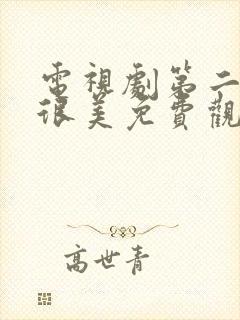 電視劇第二
很美免費觀
高世青